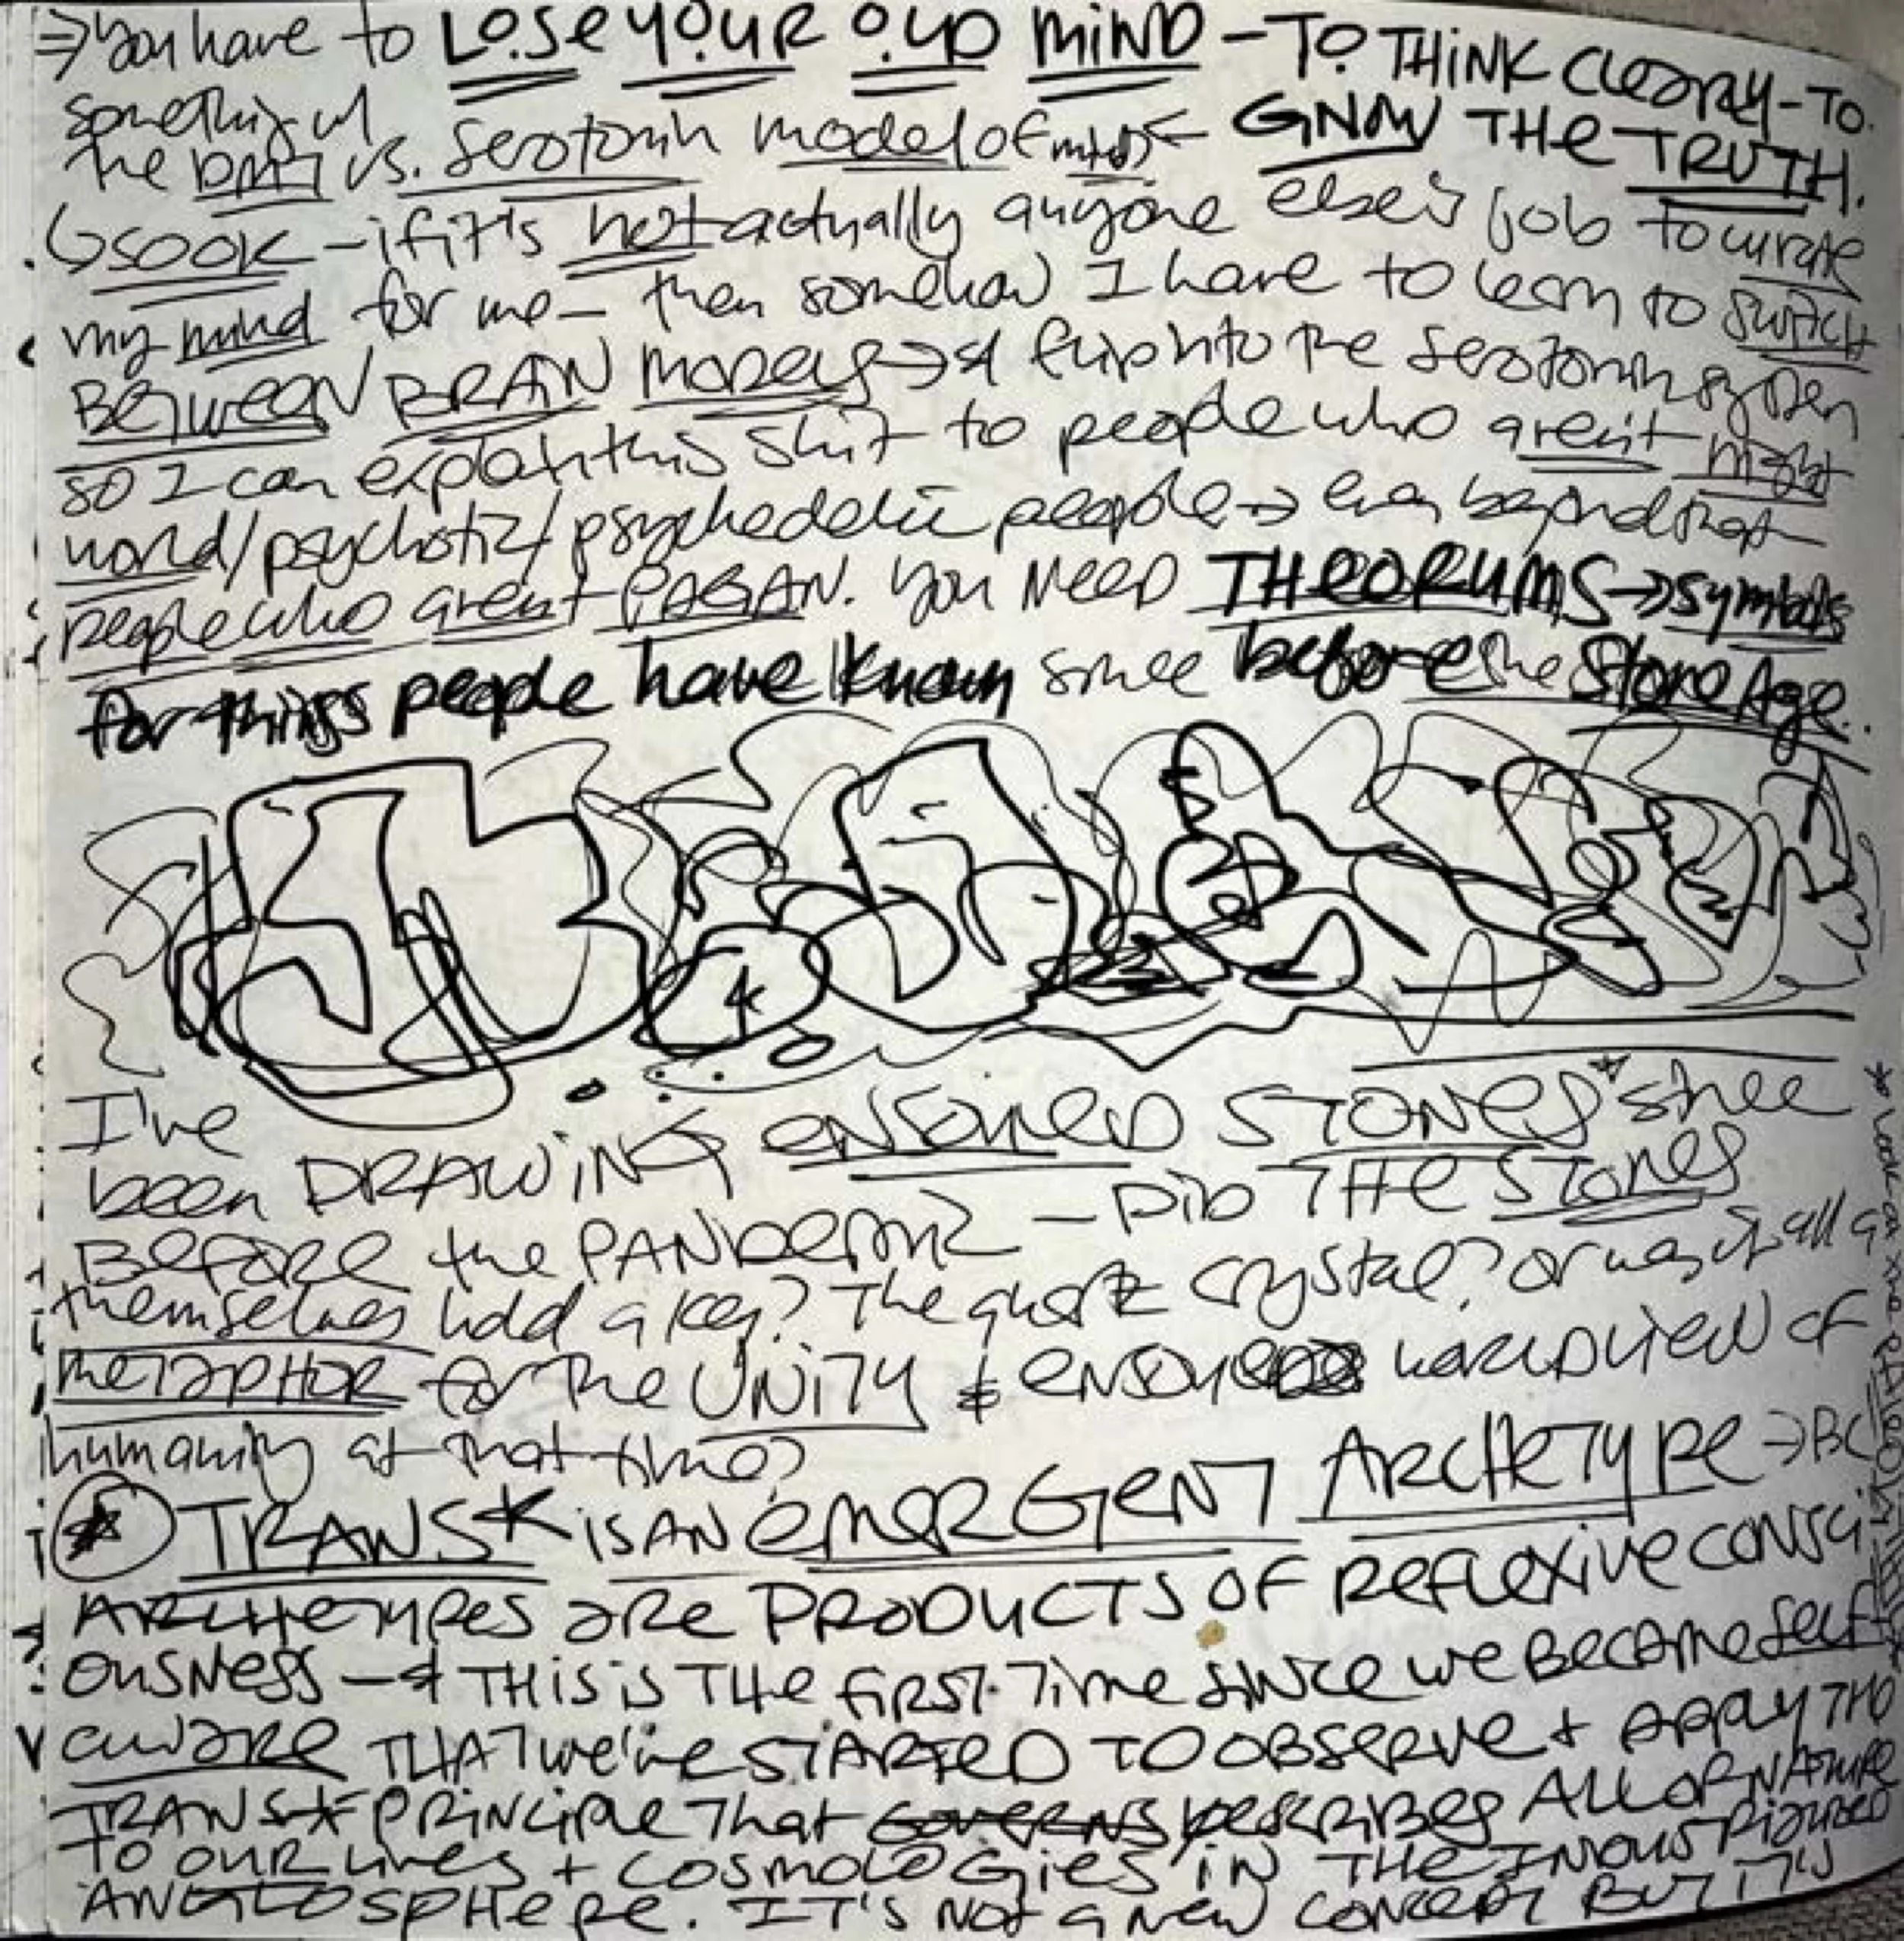 ⇒ you have to LOSE YOUR OLD MIND – TO THINK CLEARLY – TO
something w/ GNOW THE TRUTH.
the DMT vs. serotonin model of mind ←
↳ SOOK – if it's not actually anyone else's job to curate
my mind for me – then somehow I have to learn to SWITCH
BETWEEN BRAIN MODELS → & flip into the serotonin system
so I can explain this shit to people who aren't night
world/psychotic/psychedelic people → even beyond that
people who aren't PAGAN. You NEED THEORUMS → symbols
for things people have known since before the Stone Age.
I've
been DRAWING ENSOULED STONES* since
BEFORE the PANDEMIC – DID THE STONES
themselves hold a key? The quartz crystal? or was it all a
METAPHOR for the UNITY & ensouled WORLDVIEW of
humanity at that time?
TRANS* IS AN EMERGENT ARCHETYPE → BC
ARCHETYPES are PRODUCTS OF REFLEXIVE CONSCI
OUSNESS – & THIS IS THE FIRST TIME SINCE WE BECAME SELF
AWARE THAT we've STARTED TO OBSERVE + APPLY THE
TRANS* PRINCIPLE THAT GOVERNS DESCRIBES ALL OF NATURE
TO OUR LIVES + COSMOLOGIES IN THE INDUSTRIALIZED
ANGLOSPHERE. IT'S NOT a NEW CONCEPT BUT IT'S